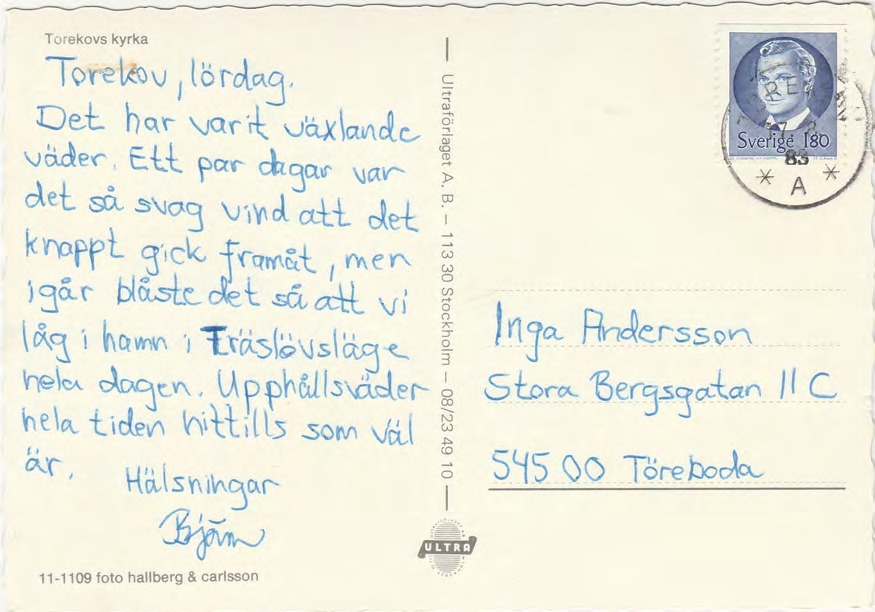 Torekovs kyrka
Torekov, lördag.
Det har varit växlande
väder. Ett par dagar var
det så svag vind att det
knappt gick framåt, men
igår blåste det så att vi
låg i hamn i Träslövsläge
hela dagen. Upphållsväder
hela tiden hittills som väl
är.
Hälsningar
Björn
11-1109 foto hallberg & carlsson
Ultraförlaget A. B. – 113 30 Stockholm – 08/23 49 10
ULTRA
Sverige 180
83
A
Inga Andersson
Stora Bergsgatan 11 C
545 00 Töreboda